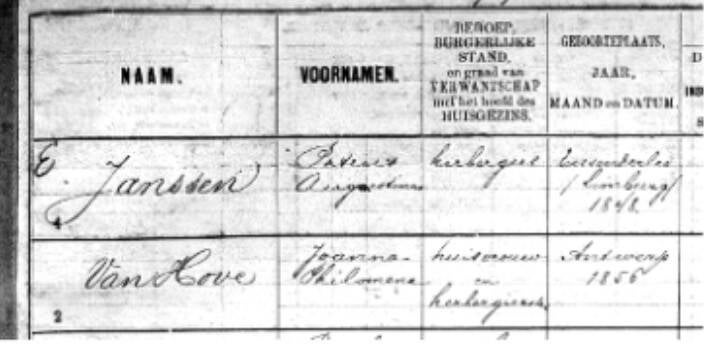 NAAM.
VOORNAMEN.
BEROEP,
BURGERLIJKE
STAND,
en graad van
VERWANTSCHAP
met het hoofd des
HUISGEZINS.
GEBOORTEPLAATS,
JAAR,
MAAND en DATUM.
D
E
1
Janssen
Petrus
Augustinus
herbergier
/ Limburg /
1848
2
Van Hove
Joanna
Philomena
huisvrouw
en
herbergierster
Antwerp
1856